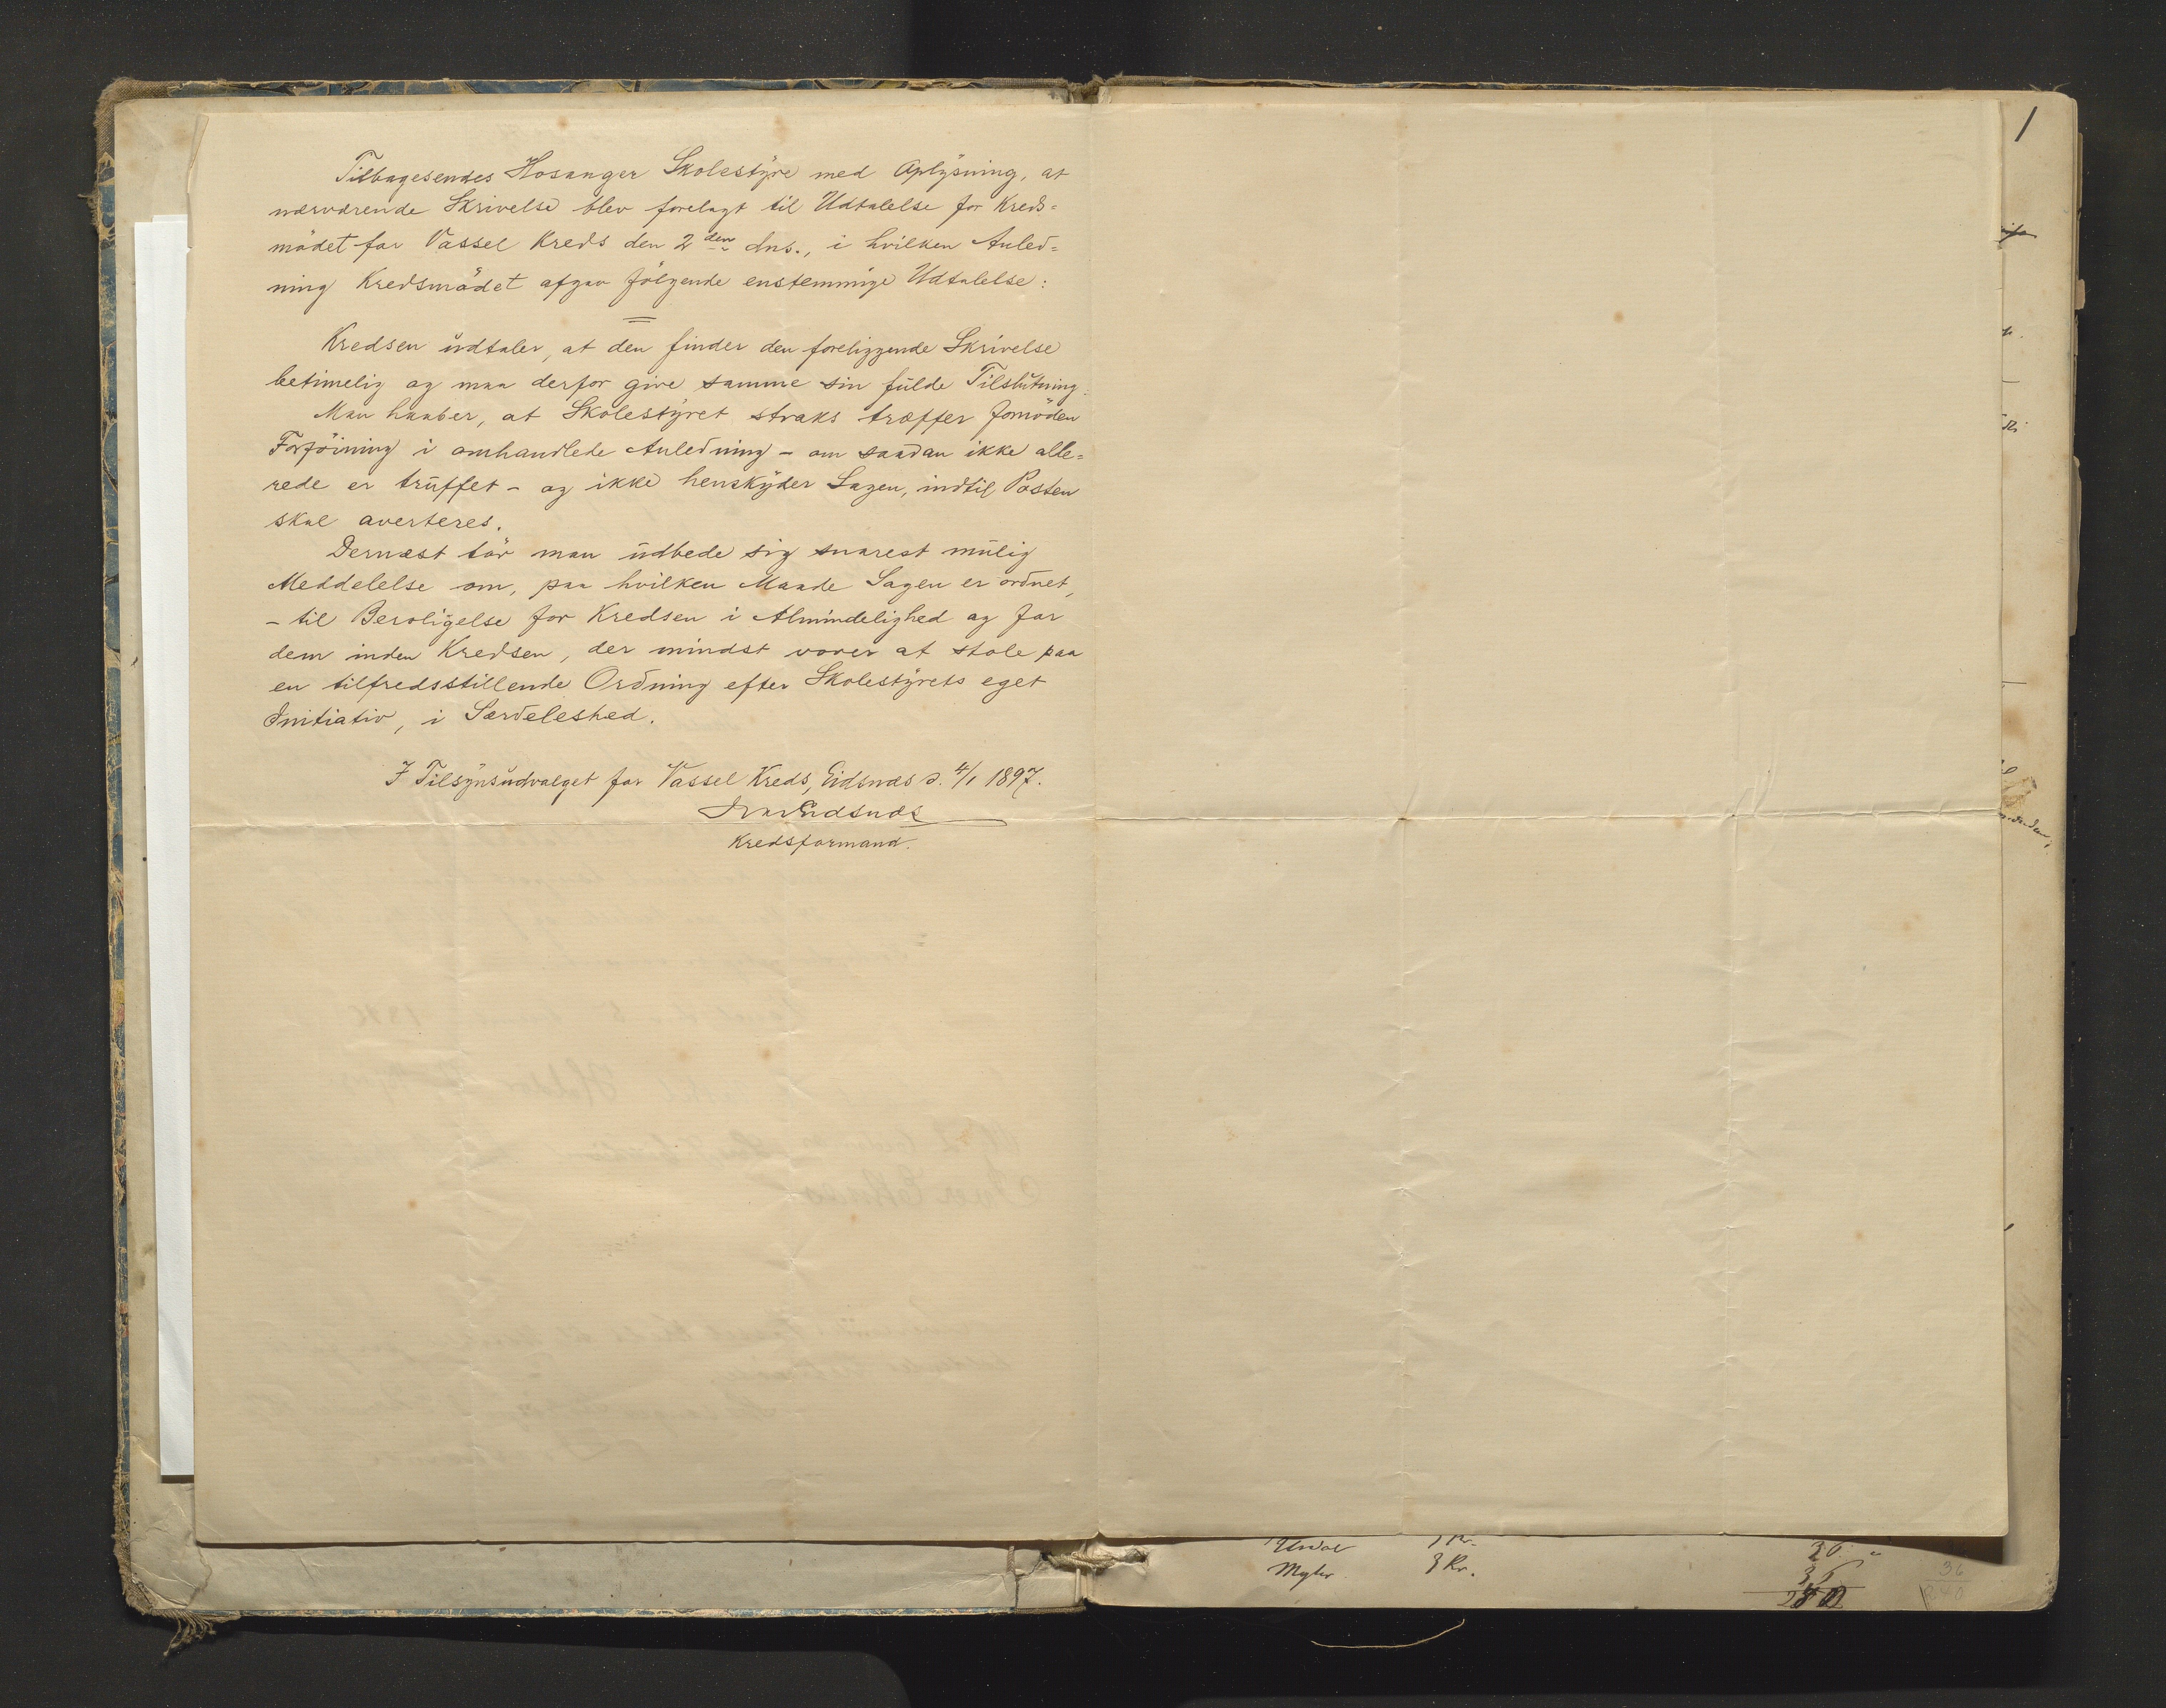 Tilbagesendes Hosanger Skolestÿre med Oplÿsning, at
nærværende Skrivelse blev forelagt til Udtalelse for Kreds=
mödet for Vassel Kreds den 2den dns., i hvilken Anled=
ning Kredsmödet afgav fölgende enstemmige Udtalelse:
Kredsen udtaler, at den finder den foreliggende Skrivelse
betimelig og maa derfor give samme sin fulde Tilslutning.
Man haaber, at Skolestÿret straks træffer fornöden
Forföining i omhandlede Anledning – om saadan ikke alle=
rede er truffet – og ikke henskÿder Sagen, indtil Posten
skal averteres.
Dernæst tör man udbede sig snarest mulig
Meddelelse om, paa hvilken Maade Sagen er ordnet,
– til Beroligelse for Kredsen i Almindelighed og for
dem inden Kredsen, der mindst vover at stole paa
en tilfredsstillende Ordning efter Skolestÿrets eget
Initiativ, i Særdeleshed.
I Tilsÿnsudvalget for Vassel Kreds, Eidsnæs d. 4/1 1897.
Ivar Eidsnæs
Kredsformand.
1
Myhr 3 Kr.